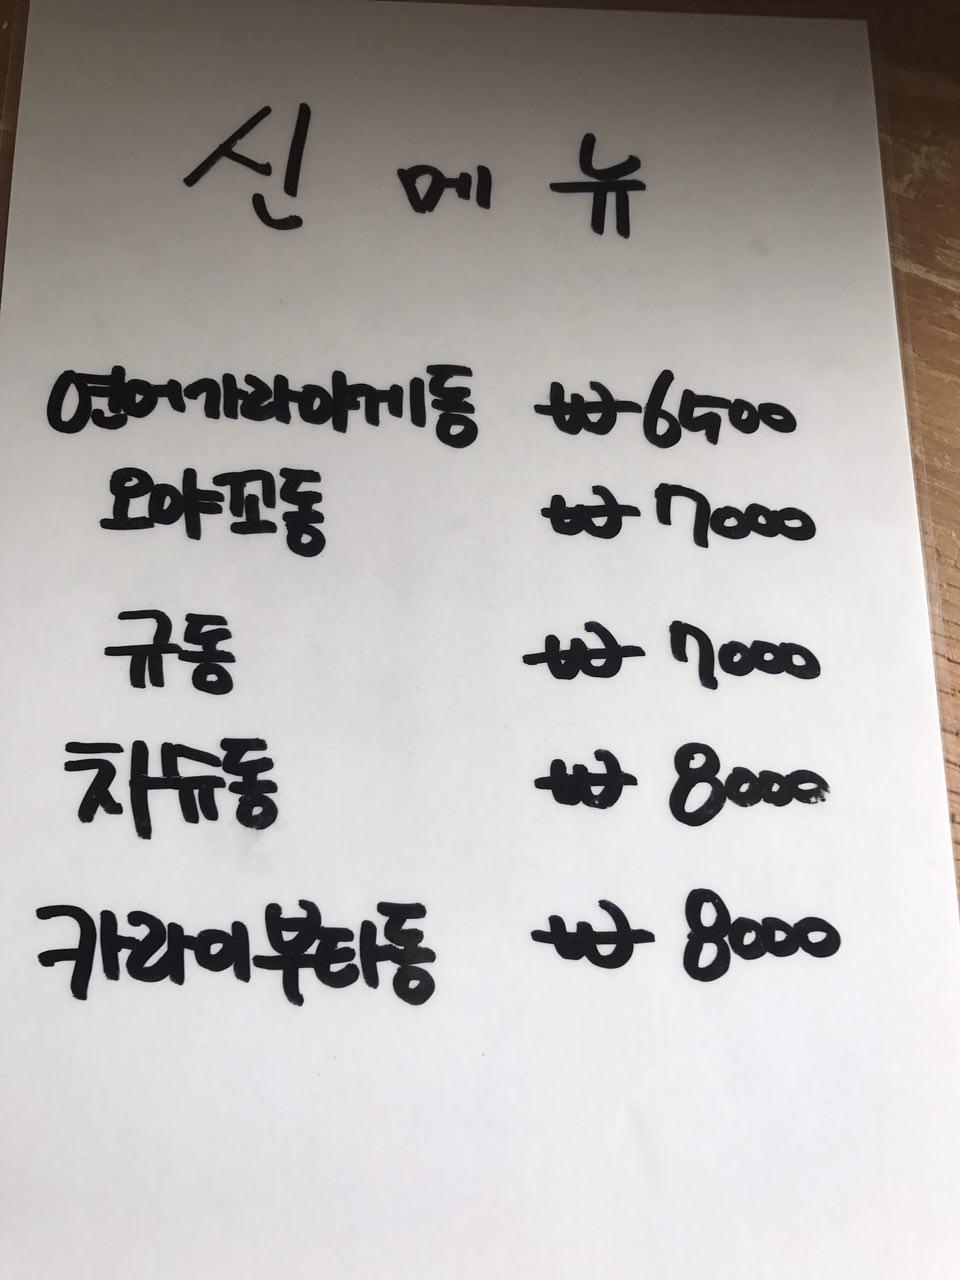 신메뉴
연어가라아게동 ₩6500
오야꼬동 ₩7000
규동 ₩7000
차슈동 ₩8000
카라이부타동 ₩8000